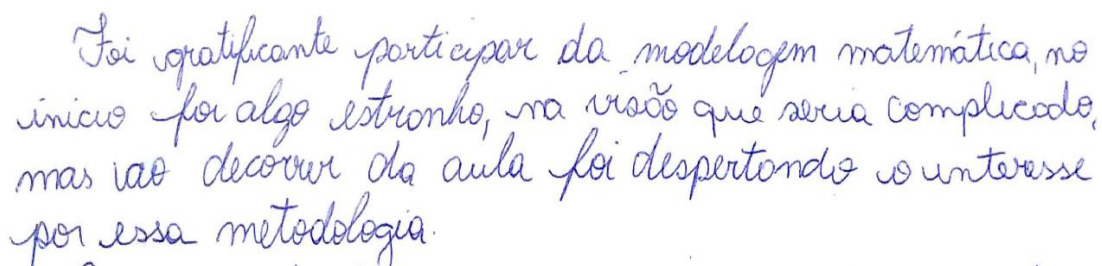 Foi gratificante participar da modelagem matemática, no
inicio foi algo estranho, na visão que seria complicado,
mas ao decorrer da aula foi despertando o interesse
por essa metodologia.